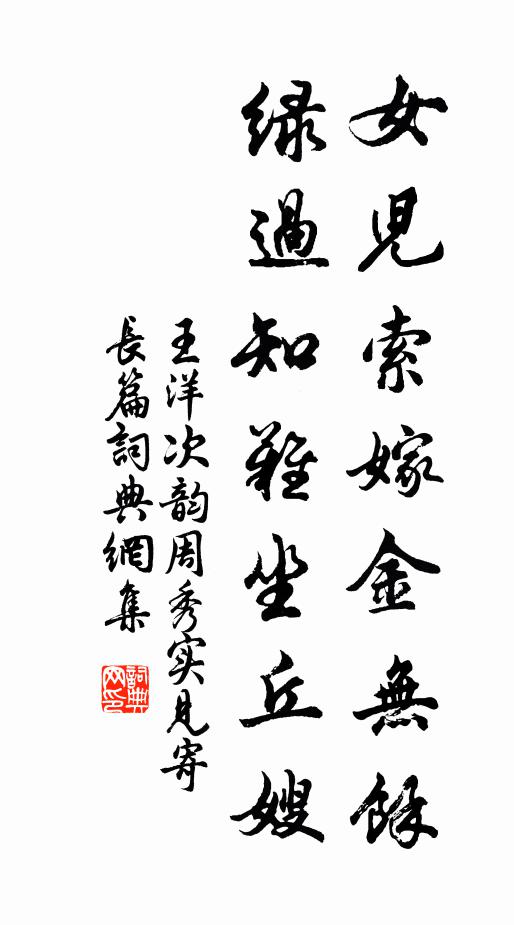 女兒索嫁金無餘
緣過知難坐丘嫂
王洋次韵周秀实見寄
長篇詞典網集
詞典网印